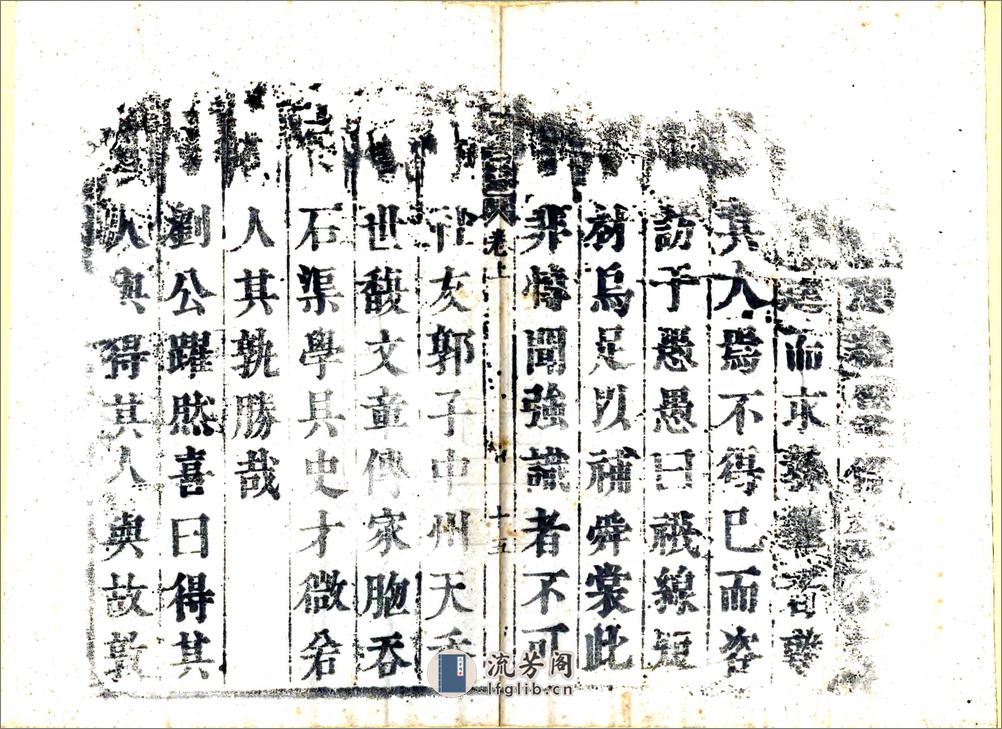 而求
其人焉不得已而咨
訪于愚愚曰襪線短
材烏足以補舜裳此
非博聞強識者不可
卷上
十五
社友郭子中州天
世馥文章傳家胸吞
石渠學具史才微若
人其孰勝哉
劉公躍然喜曰得其
人與得其人與故敦
流芳阁
lfglib.cn